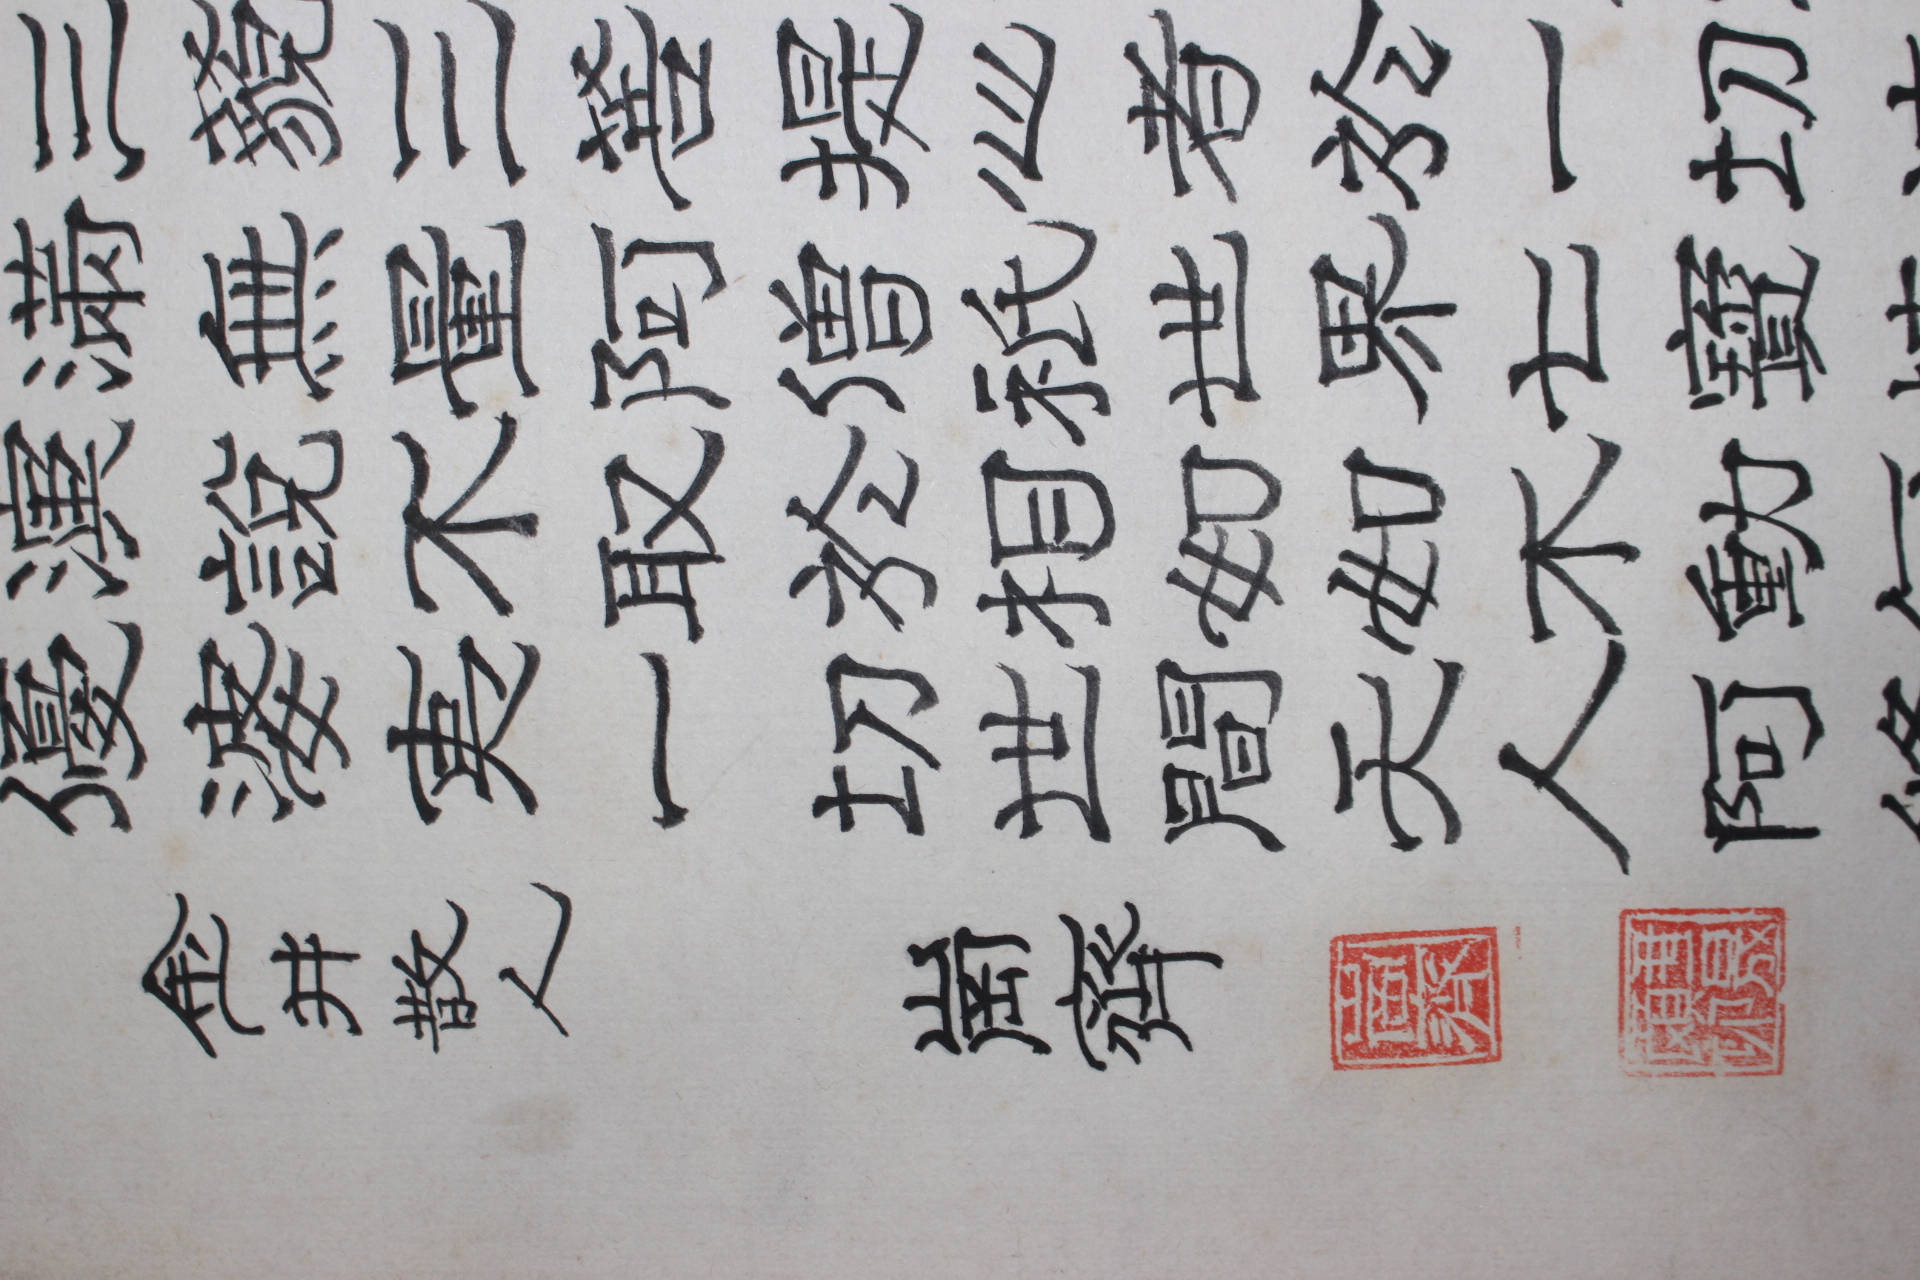 三藐三菩提心者於一切
滿無量阿僧祇世界七寶
演說不取於相如如不動
優婆夷一切世間天人阿
金井散人
崗齊
崗齊